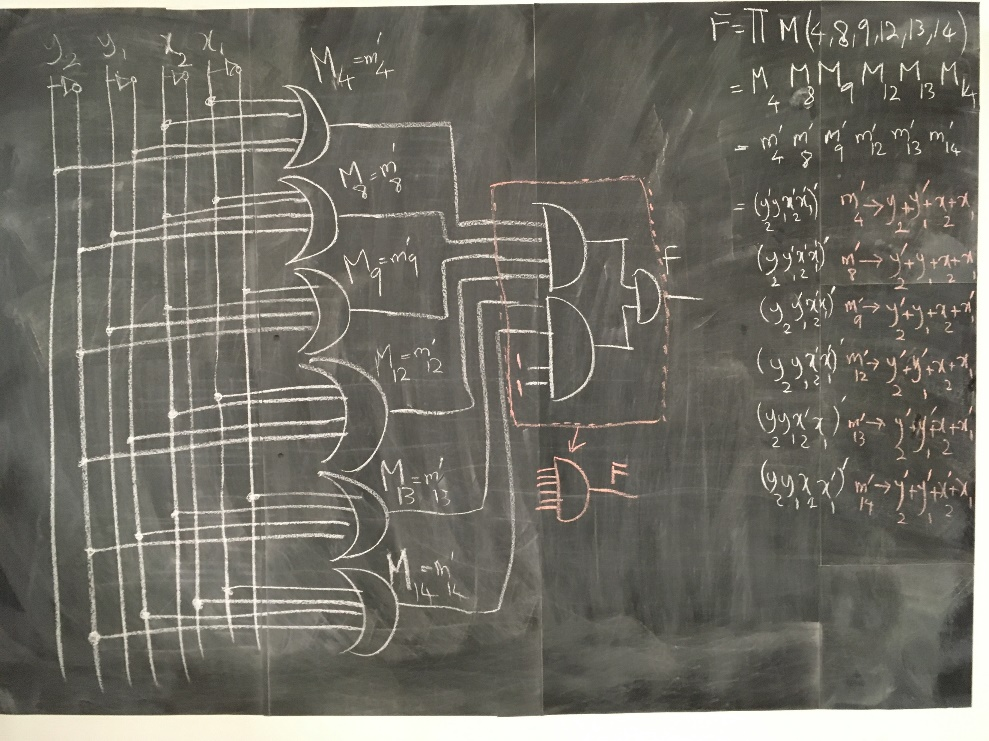 y₂ y₁ x₂ x₁
M₄ = m₄'
M₈ = m₈'
M₉ = m₉'
M₁₂ = m₁₂'
M₁₃ = m₁₃'
M₁₄ = m₁₄'
F
1
F
F = Π M(4,8,9,12,13,14)
= M₄ M₈ M₉ M₁₂ M₁₃ M₁₄
= m₄' m₈' m₉' m₁₂' m₁₃' m₁₄'
= (y₂'y₁x₂'x₁')' m₄' → y₂+y₁'+x₂+x₁
(y₂y₁'x₂'x₁')' m₈' → y₂'+y₁+x₂+x₁
(y₂y₁'x₂'x₁)' m₉' → y₂'+y₁+x₂+x₁'
(y₂y₁x₂'x₁')' m₁₂' → y₂'+y₁'+x₂+x₁
(y₂y₁x₂'x₁)' m₁₃' → y₂'+y₁'+x₂+x₁'
(y₂y₁x₂x₁')' m₁₄' → y₂'+y₁'+x₂'+x₁